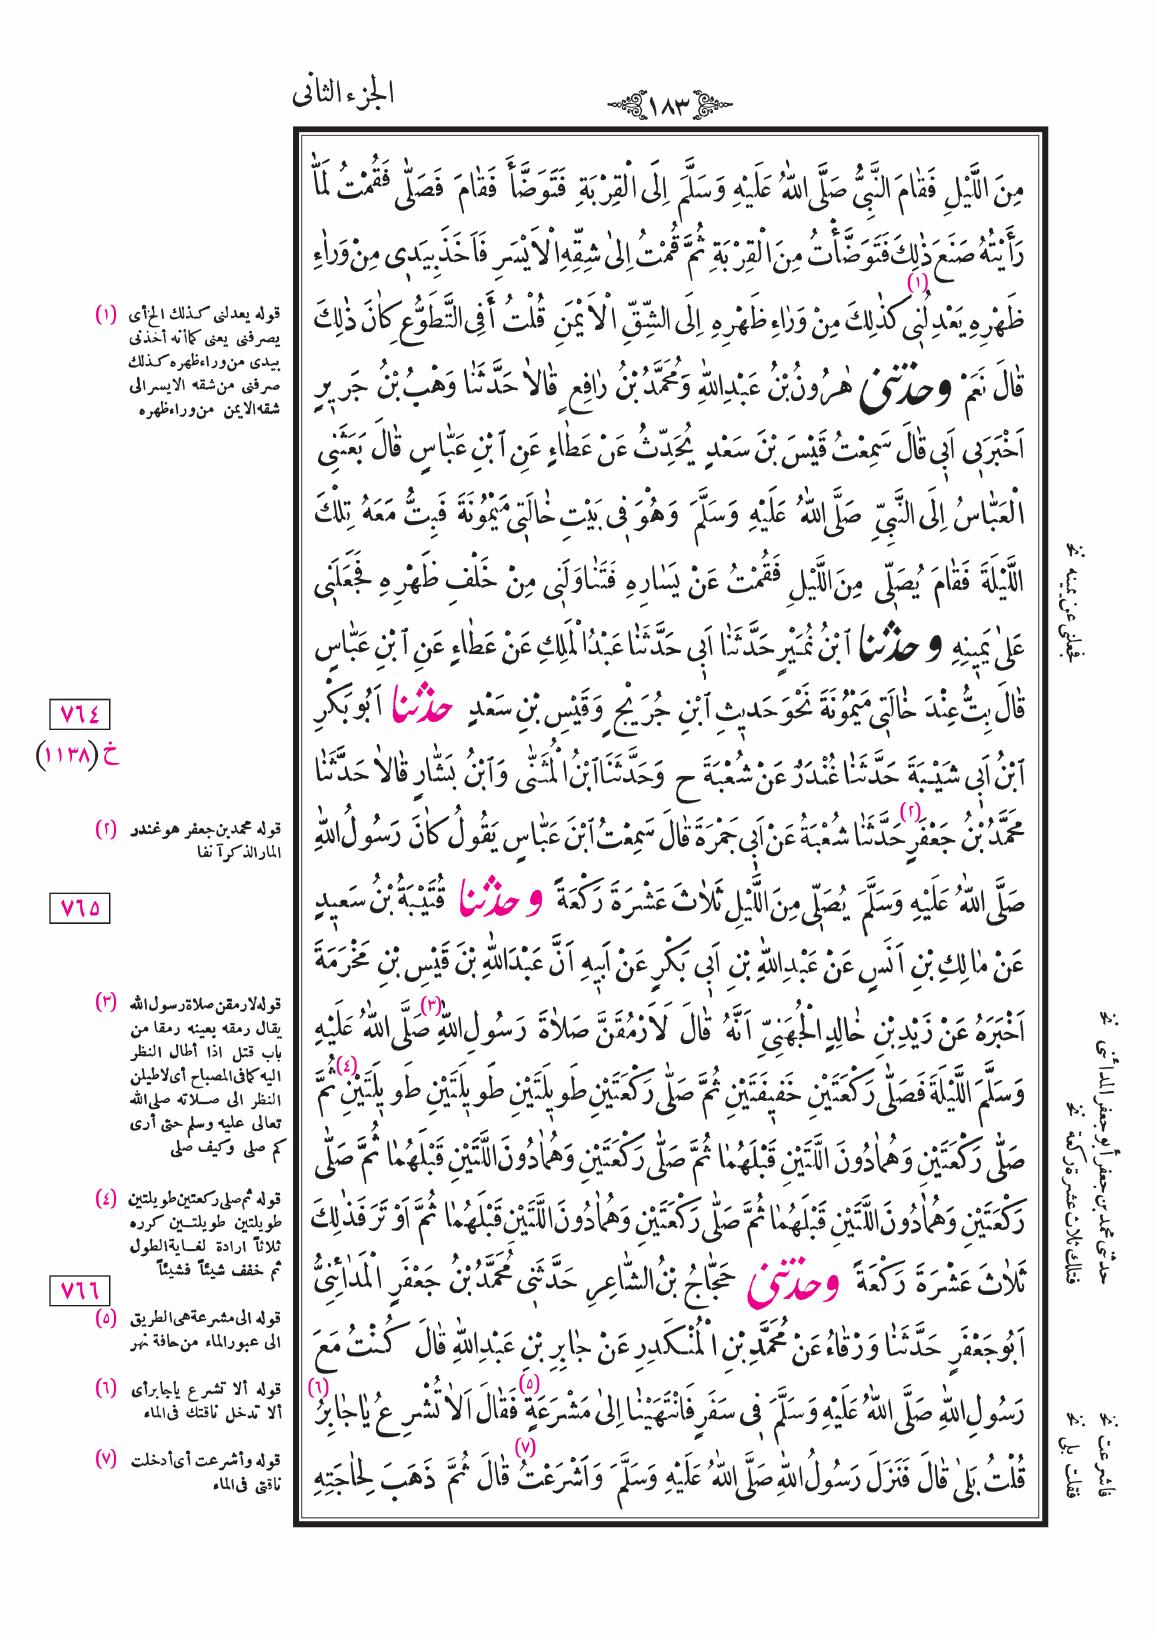 الجزء الثانى
١٨٣
مِنَ اللَّيْلِ فَقَامَ النَّبِىُّ صَلَّى اللهُ عَلَيْهِ وَسَلَّمَ اِلَى الْقِرْبَةِ فَتَوَضَّأَ فَقَامَ فَصَلَّى فَقُمْتُ لَمَّا
رَأَيْتُهُ صَنَعَ ذٰلِكَ فَتَوَضَّأْتُ مِنَ الْقِرْبَةِ ثُمَّ قُمْتُ اِلىٰ شِقِّهِ الْاَيْسَرِ فَاَخَذَ بِيَدِى مِنْ وَرَاءِ
ظَهْرِهِ يَعْدِلُنِى (١) كَذٰلِكَ مِنْ وَرَاءِ ظَهْرِهِ اِلَى الشِّقِّ الْاَيْمَنِ قُلْتُ أَفِى التَّطَوُّعِ كَانَ ذٰلِكَ
قَالَ نَعَمْ وحدثنى هٰرُونُ بْنُ عَبْدِاللهِ وَمُحَمَّدُ بْنُ رَافِعٍ قَالَا حَدَّثَنَا وَهْبُ بْنُ جَرِيرٍ
اَخْبَرَنِى اَبِى قَالَ سَمِعْتُ قَيْسَ بْنَ سَعْدٍ يُحَدِّثُ عَنْ عَطَاءٍ عَنِ ابْنِ عَبَّاسٍ قَالَ بَعَثَنِى
الْعَبَّاسُ اِلَى النَّبِىِّ صَلَّى اللهُ عَلَيْهِ وَسَلَّمَ وَهُوَ فِى بَيْتِ خَالَتِى مَيْمُونَةَ فَبِتُّ مَعَهُ تِلْكَ
اللَّيْلَةَ فَقَامَ يُصَلِّى مِنَ اللَّيْلِ فَقُمْتُ عَنْ يَسَارِهِ فَتَنَاوَلَنِى مِنْ خَلْفِ ظَهْرِهِ فَجَعَلَنِى
عَلىٰ يَمِينِهِ وحدثنا ابْنُ نُمَيْرٍ حَدَّثَنَا اَبِى حَدَّثَنَا عَبْدُ الْمَلِكِ عَنْ عَطَاءٍ عَنِ ابْنِ عَبَّاسٍ
قَالَ بِتُّ عِنْدَ خَالَتِى مَيْمُونَةَ نَحْوَ حَدِيثِ ابْنِ جُرَيْجٍ وَقَيْسِ بْنِ سَعْدٍ حدثنا اَبُو بَكْرِ
ابْنُ اَبِى شَيْبَةَ حَدَّثَنَا غُنْدَرٌ عَنْ شُعْبَةَ ح وَحَدَّثَنَا ابْنُ الْمُثَنّٰى وَابْنُ بَشَّارٍ قَالَا حَدَّثَنَا
مُحَمَّدُ بْنُ جَعْفَرٍ (٢) حَدَّثَنَا شُعْبَةُ عَنْ اَبِى جَمْرَةَ قَالَ سَمِعْتُ ابْنَ عَبَّاسٍ يَقُولُ كَانَ رَسُولُ اللهِ
صَلَّى اللهُ عَلَيْهِ وَسَلَّمَ يُصَلِّى مِنَ اللَّيْلِ ثَلَاثَ عَشْرَةَ رَكْعَةً وحدثنا قُتَيْبَةُ بْنُ سَعِيدٍ
عَنْ مَالِكِ بْنِ اَنَسٍ عَنْ عَبْدِ اللهِ بْنِ اَبِى بَكْرٍ عَنْ اَبِيهِ اَنَّ عَبْدَ اللهِ بْنَ قَيْسِ بْنِ مَخْرَمَةَ
اَخْبَرَهُ عَنْ زَيْدِ بْنِ خَالِدٍ الْجُهَنِىِّ اَنَّهُ قَالَ لَاَرْمُقَنَّ صَلَاةَ رَسُولِ اللهِ (٣) صَلَّى اللهُ عَلَيْهِ
وَسَلَّمَ اللَّيْلَةَ فَصَلَّى رَكْعَتَيْنِ خَفِيفَتَيْنِ ثُمَّ صَلَّى رَكْعَتَيْنِ طَوِيلَتَيْنِ طَوِيلَتَيْنِ طَوِيلَتَيْنِ (٤) ثُمَّ
صَلَّى رَكْعَتَيْنِ وَهُمَا دُونَ اللَّتَيْنِ قَبْلَهُمَا ثُمَّ صَلَّى رَكْعَتَيْنِ وَهُمَا دُونَ اللَّتَيْنِ قَبْلَهُمَا ثُمَّ صَلَّى
رَكْعَتَيْنِ وَهُمَا دُونَ اللَّتَيْنِ قَبْلَهُمَا ثُمَّ صَلَّى رَكْعَتَيْنِ وَهُمَا دُونَ اللَّتَيْنِ قَبْلَهُمَا ثُمَّ اَوْتَرَ فَذٰلِكَ
ثَلَاثَ عَشْرَةَ رَكْعَةً وحدثنى حَجَّاجُ بْنُ الشَّاعِرِ حَدَّثَنِى مُحَمَّدُ بْنُ جَعْفَرٍ الْمَدَائِنِىُّ
اَبُو جَعْفَرٍ حَدَّثَنَا وَرْقَاءُ عَنْ مُحَمَّدِ بْنِ الْمُنْكَدِرِ عَنْ جَابِرِ بْنِ عَبْدِ اللهِ قَالَ كُنْتُ مَعَ
رَسُولِ اللهِ صَلَّى اللهُ عَلَيْهِ وَسَلَّمَ فِى سَفَرٍ فَانْتَهَيْنَا اِلىٰ مَشْرَعَةٍ (٥) فَقَالَ اَلَا تُشْرِعُ يَاجَابِرُ (٦)
قُلْتُ بَلىٰ قَالَ فَنَزَلَ رَسُولُ اللهِ صَلَّى اللهُ عَلَيْهِ وَسَلَّمَ وَاَشْرَعْتُ (٧) قَالَ ثُمَّ ذَهَبَ لِحَاجَتِهِ
(١) قوله يعدلنى كذلك الخ أى
يصرفنى يعنى كمأنه أخذنى
بيدى من وراء ظهره كذلك
صرفنى من شقه الايسر الى
شقه الايمن من وراء ظهره
٧٦٤
خ (١١٣٨)
(٢) قوله محمد بن جعفر هو غندر
المار الذكر آنفا
٧٦٥
(٣) قوله لارمقن صلاة رسول الله
يقال رمقه بعينه رمقا من
باب قتل اذا أطال النظر
اليه كما فى المصباح أى لاطيلن
النظر الى صلاته صلى الله
تعالى عليه وسلم حتى أرى
كم صلى وكيف صلى
(٤) قوله ثم صلى ركعتين طويلتين
طويلتين طويلتين كرره
ثلاثاً ارادة لغاية الطول
ثم خفف شيئاً فشيئاً
٧٦٦
(٥) قوله الى مشرعة هى الطريق
الى عبور الماء من حافة نهر
(٦) قوله ألا تشرع ياجابر أى
ألا تدخل ناقتك فى الماء
(٧) قوله وأشرعت أى أدخلت
ناقتى فى الماء
فجعلنى عن يمينه نخ
حدثنى محمد بن جعفر أبو جعفر المدائنى نخ
فتلك ثلاث عشرة ركعة نخ
فاشرعت نخ
فقلت بلى نخ